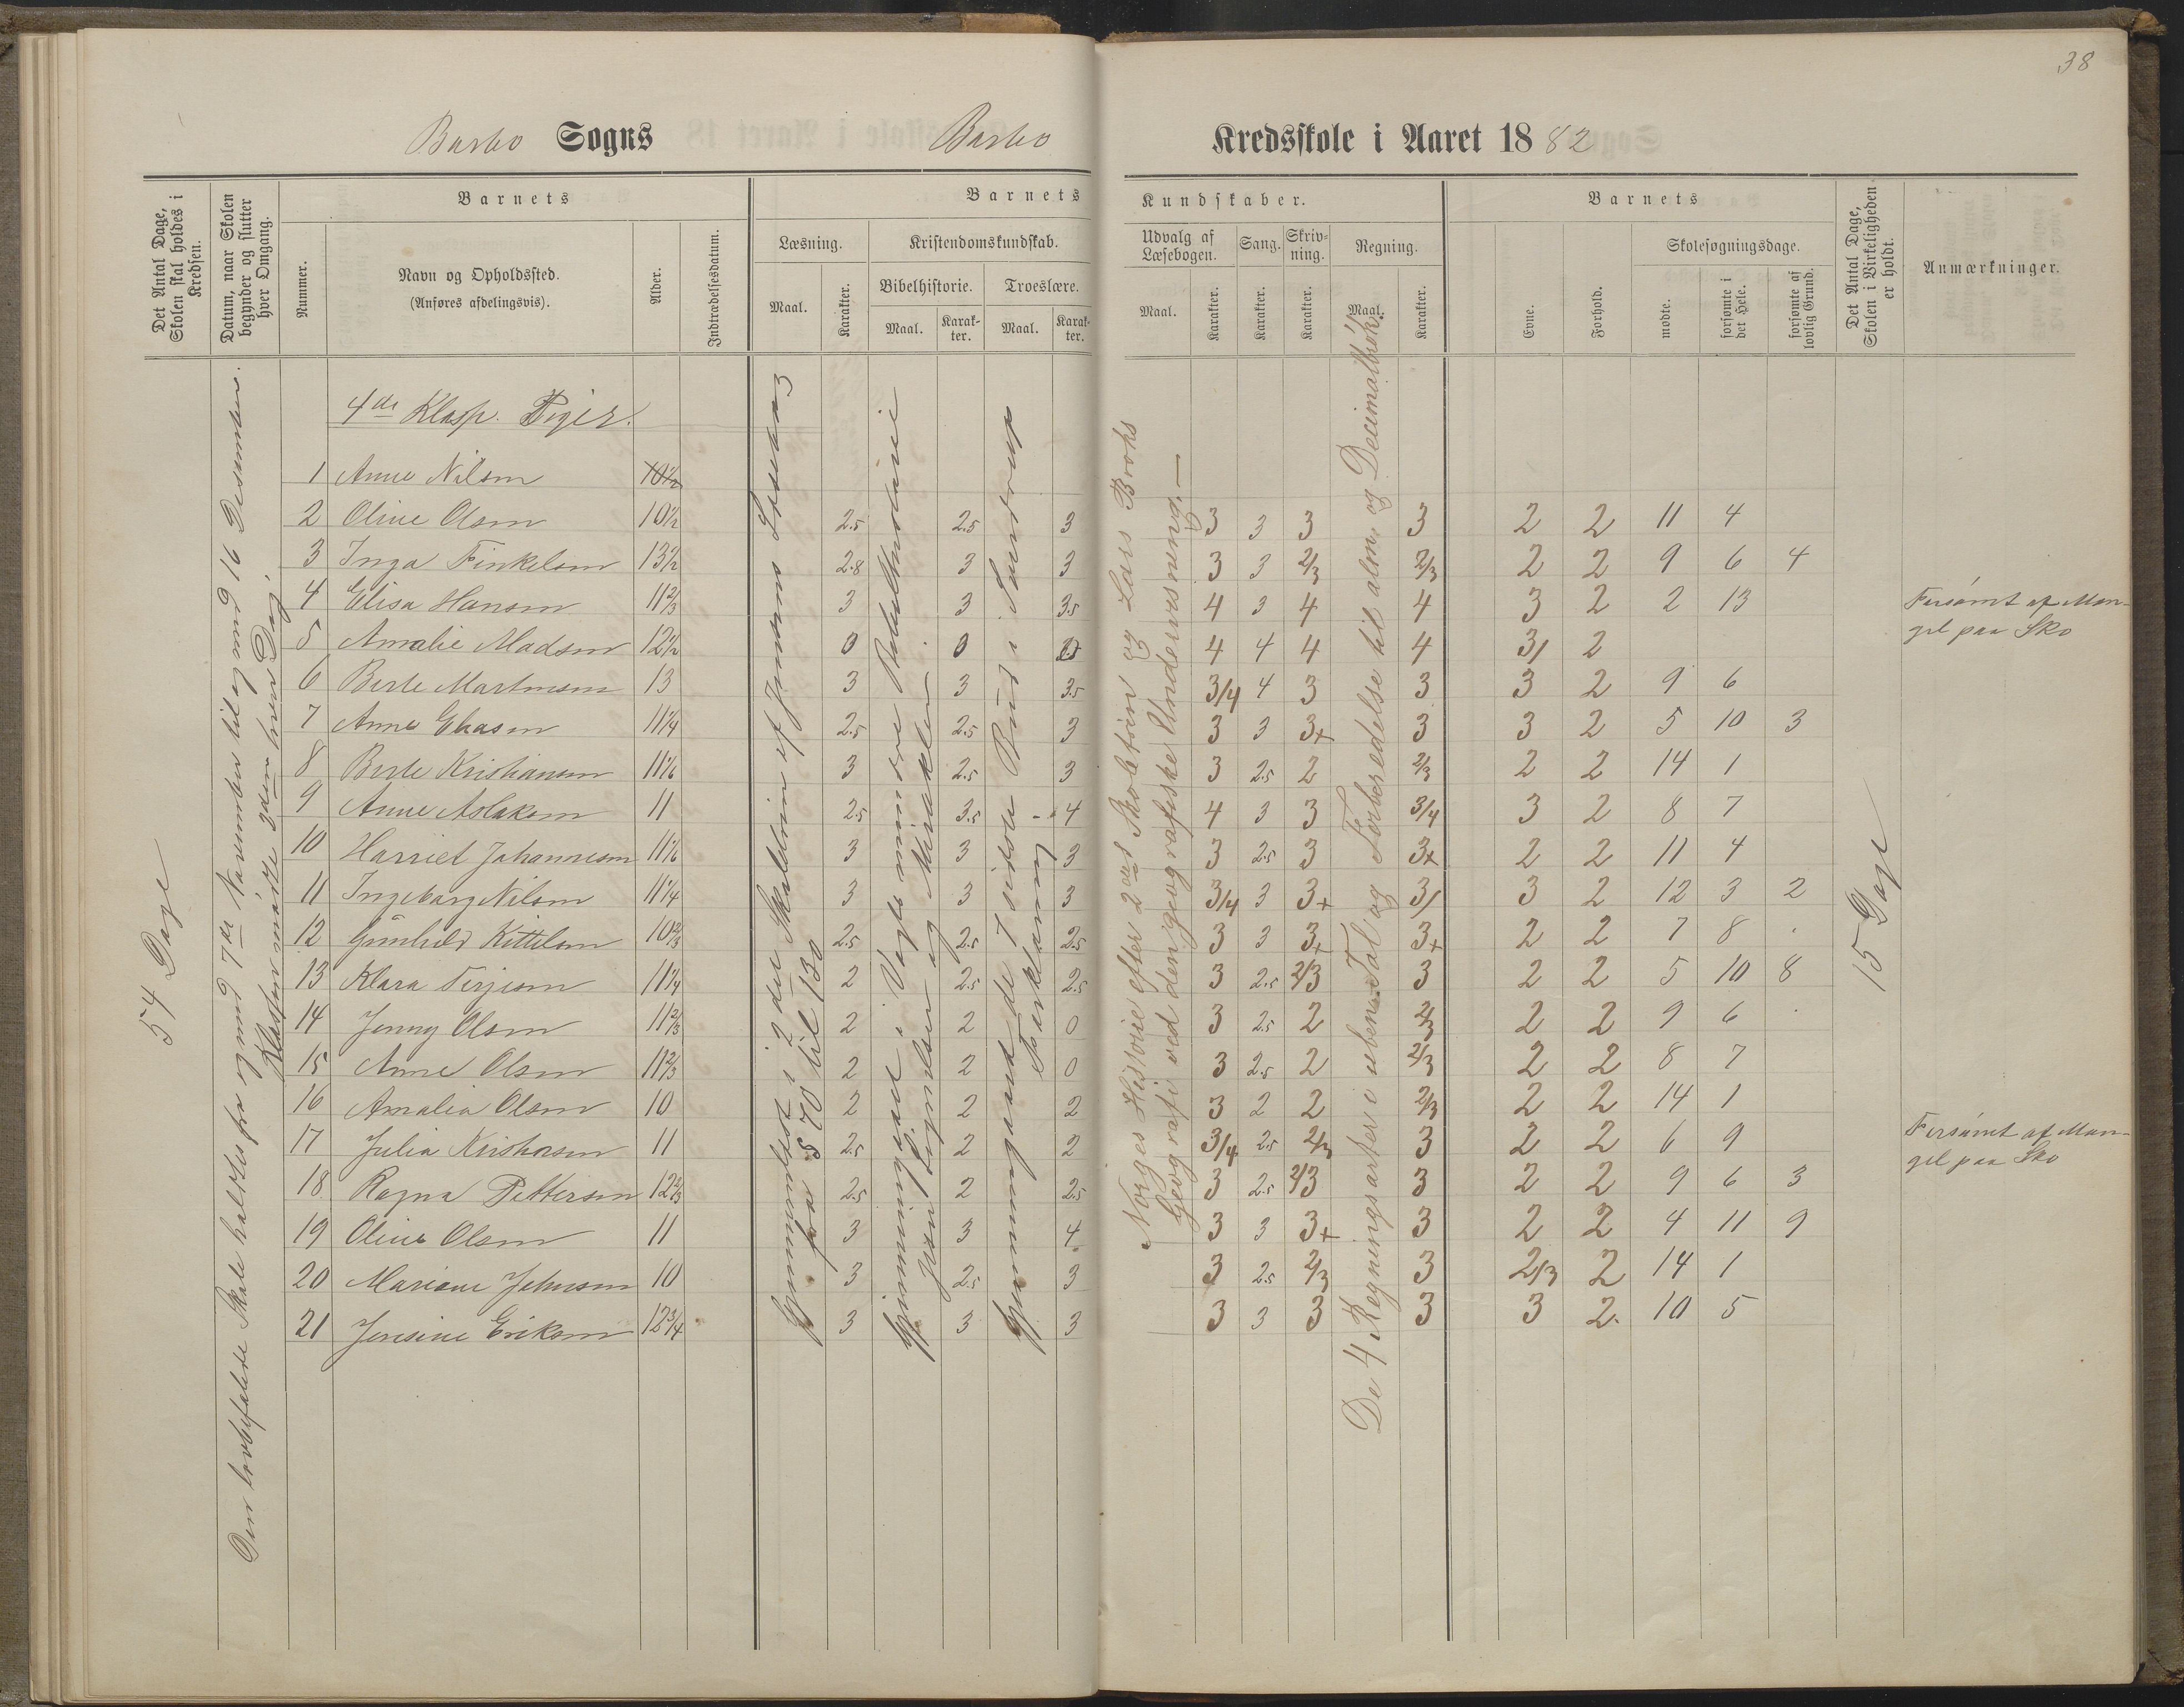 38
Barbo Sogns Barbo Kredsskole i Aaret 1882
Det Antal Dage, Skolen skal holdes i Kredsen.
Datum, naar Skolen begynder og slutter hver Omgang.
Barnets
Nummer.
Navn og Opholdssted.
(Anføres afdelingsvis).
Alder.
Indtrædelsesdatum.
Barnets Kundskaber.
Læsning.
Maal.
Karakter.
Kristendomskundskab.
Bibelhistorie.
Maal.
Karakter.
Troeslære.
Maal.
Karakter.
Udvalg af Læsebogen.
Maal.
Karakter.
Sang.
Karakter.
Skrivning.
Karakter.
Regning.
Maal.
Karakter.
Barnets
Evne.
Forhold.
Skolesøgningsdage.
mødte.
forsømte i det Hele.
forsømte af lovlig Grund.
Det Antal Dage, Skolen i Virkeligheden er holdt.
Anmærkninger.
54 Dage
Den lovbefalede Skole holdtes fra og med 7de November til og med 16 Desember.
Klassen mødte 2den hver Dag.
4de Klasse. Piger.
1 Anne Nilsen 10½
2 Oline Olsen 10½ 2.5 2.5 3 3 3 3 3 2 2 11 4
3 Inga Finkelsen 13½ 2.8 3 3 3 3 2/3 2/3 2 2 9 6 4
4 Elisa Hansen 11⅔ 3 3 3.5 4 3 4 4 3 2 2 13 Forsømt af Man-
gel paa Sko
5 Amalie Madsen 12½ 0 0 0 4 4 4 4 3/ 2
6 Berte Martinsen 13 3 3 3.5 3/4 4 3 3 3 2 9 6
7 Anne Eliasen 11¼ 2.5 2.5 3 3 3 3+ 3 3 2 5 10 3
8 Berte Kristiansen 11⅙ 3 2.5 3 3 2.5 2 2/3 2 2 14 1
9 Anne Aslaksen 11 2.5 3.5 4 4 3 3 3/4 3 2 8 7
10 Harriet Johannesen 11⅙ 3 3 3 3 2.5 3 3+ 2 2 11 4
11 Ingeborg Nilsen 11¼ 3 3 3 3/4 3 3+ 3/ 3 2 12 3 2
12 Gunhild Kittelsen 10⅔ 2.5 2.5 2.5 3 3 3+ 3+ 2 2 7 8
13 Klara Terjesen 11¼ 2 2.5 2.5 3 2.5 2/3 3 2 2 5 10 8
14 Jenny Olsen 11⅔ 2 2 0 3 2.5 2 2/3 2 2 9 6
15 Anne Olsen 11⅔ 2 2 0 3 2.5 2 2/3 2 2 8 7
16 Amalia Olsen 10 2 2 2 3 2 2 2/3 2 2 14 1
17 Julia Kristiasen 11 2.5 2 2 3/4 2.5 2/3 3 2 2 6 9 Forsømt af Man-
gel paa Sko
18 Ragna Pettersen 12⅔ 2.5 2 2.5 3 2.5 2/3 3 2 2 9 6 3
19 Oline Olsen 11 3 3 4 3 3 3+ 3 2 2 4 11 9
20 Mariane Johnsen 10 3 2.5 3 3 2.5 2/3 3 2/3 2 14 1
21 Jensine Eriksen 12¾ 3 3 3 3 3 3 3 3 2 10 5
Gjennemlæst i 2det Skoletrin af Jensens Læsebog
fra § 70 til 130
Gjennemgaaet i Vogts mindre Bibelhistorie
Jesu Lignelser og Mirakler
Gjennemgaaet de 7 sidste Bud i Sverdrups
Forklaring
Norges Historie efter 2det Skoletrin og Lars Broks
Geografi ved den geografiske Undervisning.
De 4 Regningsarter i ubenævnte Tal og Forberedelse til alm. og Decimalbrøk.
15 Dage